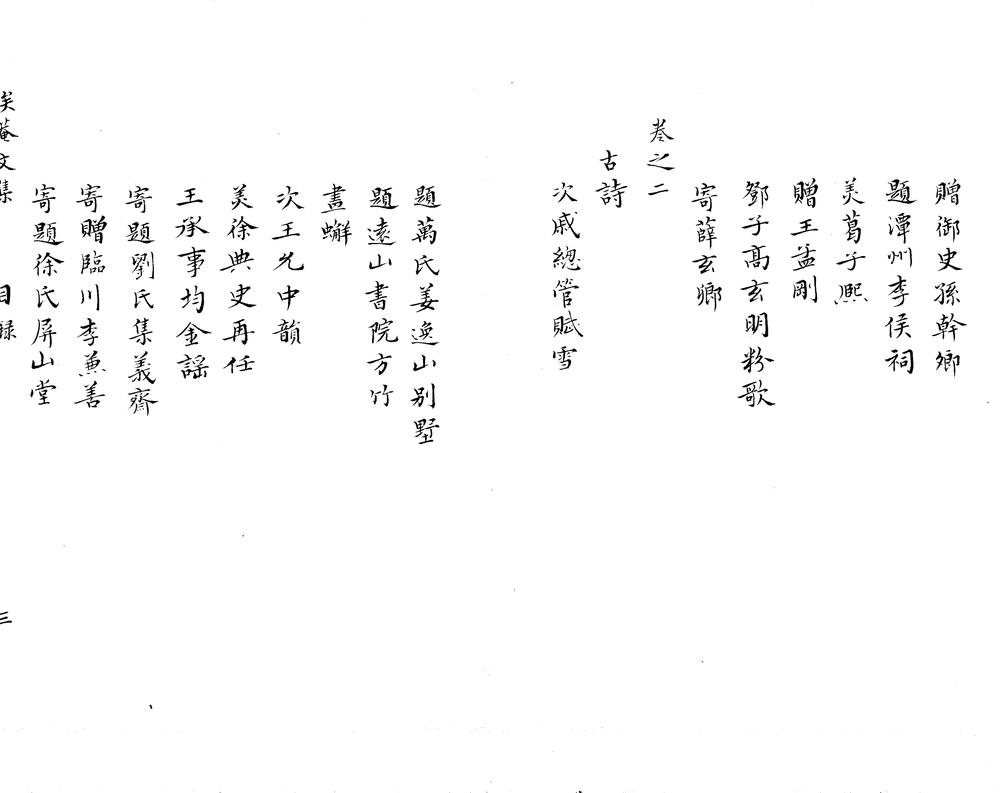 贈御史孫幹卿
題潭州李侯祠
美葛子熙
贈王孟剛
鄧子高玄明粉歌
寄薛玄卿
卷之二
古詩
次戚總管賦雪
題萬氏姜逸山别墅
題遠山書院方竹
畫蠏
次王允中韻
美徐典史再任
王承事均金謡
寄題劉氏集義齋
寄贈臨川李兼善
寄題徐氏屏山堂
俟菴文集 目録 三